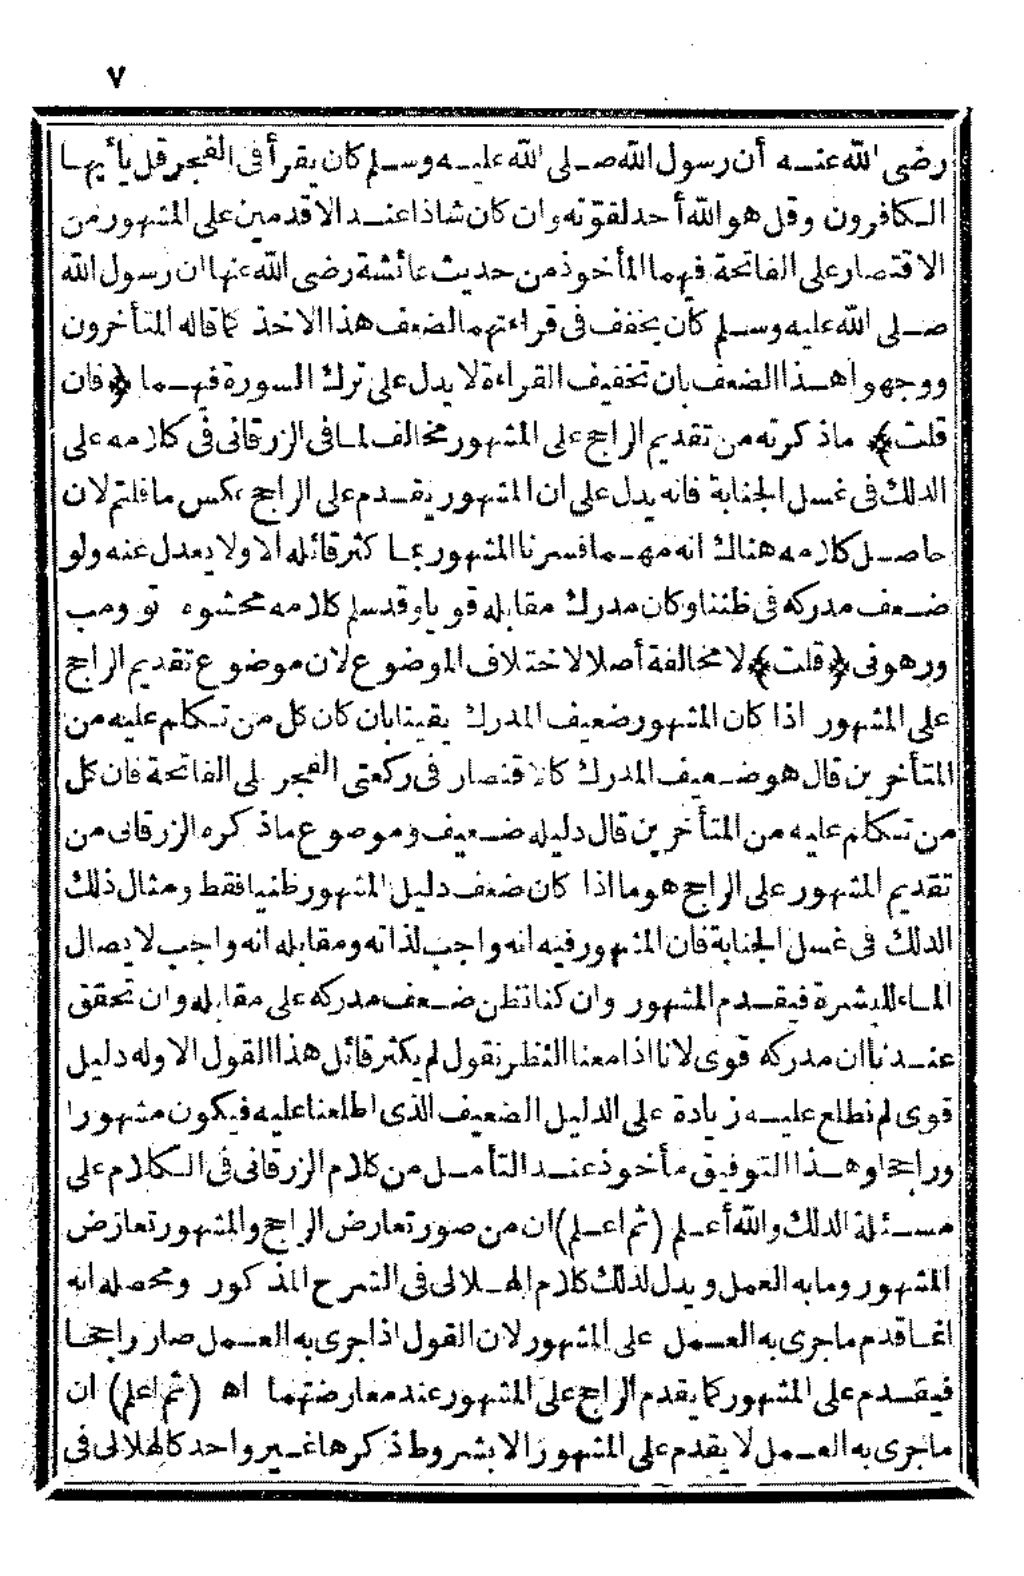 ٧
رضى الله عنه أن رسول الله صلى الله عليه وسلم كان يقرأ فى الفجر قل يأيها
الكافرون وقل هو الله أحد لقوته وان كان شاذا عند الاقدمين على المشهور من
الاقتصار على الفاتحة فيهما المأخوذ من حديث عائشة رضى الله عنها ان رسول الله
صلى الله عليه وسلم كان يخفف فى قراءتهما لضعف هذا الاخذ كما قاله المتأخرون
ووجهوا هذا الضعف بان تخفيف القراءة لا يدل على ترك السورة فيهما ﴿فان
قلت﴾ ماذكرته من تقديم الراجح على المشهور مخالف لما فى الزرقانى فى كلامه على
الدلك فى غسل الجنابة فانه يدل على ان المشهور يقدم على الراجح عكس ماقلتم لان
حاصل كلامه هناك انه مهما فسرنا المشهور بما كثر قائله الا ولا يعدل عنه ولو
ضعف مدركه فى ظننا وكان مدرك مقابله قويا وقد سلم كلامه محشوه تو ومب
ورهونى ﴿قلت﴾ لا مخالفة أصلا لاختلاف الموضوع لان موضوع تقديم الراجح
على المشهور اذا كان المشهور ضعيف المدرك يقينا بان كان كل من تكلم عليه من
المتأخرين قال هو ضعيف المدرك كالاقتصار فى ركعتى الفجر على الفاتحة فان كل
من تكلم عليه من المتأخرين قال دليله ضعيف وموضوع ماذكره الزرقانى من
تقديم المشهور على الراجح هو ما اذا كان ضعف دليل المشهور ظنيا فقط ومثال ذلك
الدلك فى غسل الجنابة فان المشهور فيه انه واجب لذاته ومقابله انه واجب لايصال
الماء للبشرة فيقدم المشهور وان كنا نظن ضعف مدركه على مقابله وان تحقق
عندنا ان مدركه قوى لانا اذا معنا النظر نقول لم يكثر قائل هذا القول الا وله دليل
قوى لم نطلع عليه زيادة على الدليل الضعيف الذى اطلعنا عليه فيكون مشهورا
وراجحا وهذا التوفيق مأخوذ عند التأمل من كلام الزرقانى فى الكلام على
مسئلة الدلك والله أعلم (ثم اعلم) ان من صور تعارض الراجح والمشهور تعارض
المشهور وما به العمل ويدل لذلك كلام الهلالى فى الشرح المذكور ومحصله انه
انما قدم ماجرى به العمل على المشهور لان القول اذا جرى به العمل صار راجحا
فيقدم على المشهور كما يقدم الراجح على المشهور عند معارضتهما اه (ثم اعلم) ان
ماجرى به العمل لا يقدم على المشهور الا بشروط ذكرها غير واحد كالهلالى فى